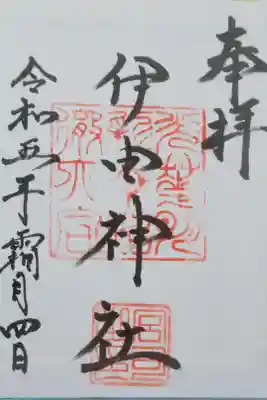 奉拝
伊由神社
令和五年霜月四日